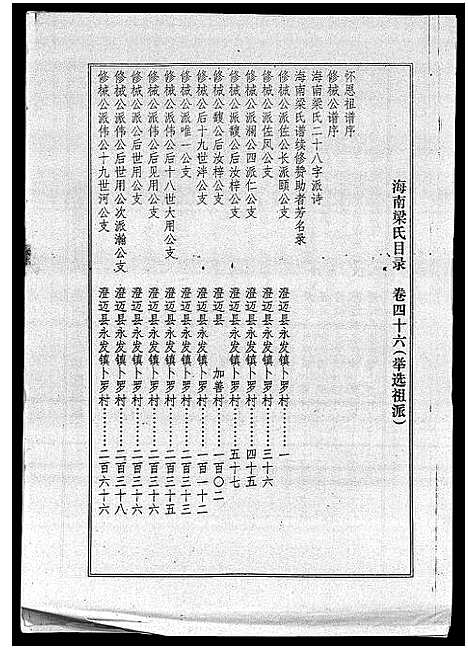 海南梁氏目录 卷四十六(举选祖派)
怀恩祖谱序
修械公谱序
海南梁氏二十八字派诗
海南梁氏谱续修赞助者芳名录
修械公派佐公长派颐公支 澄迈县永发镇卜罗村……一
修械公派佐凤公支 澄迈县永发镇卜罗村……三十六
修械公派澜公四派仁公支 澄迈县永发镇卜罗村……四十五
修械公派馥公后汝梓公支 澄迈县永发镇卜罗村……五十七
修械公馥公后汝梓公支 澄迈县 加善村……一百〇二
修械公后十九世泮公支 澄迈县永发镇卜罗村……一百一十二
修械公派唯一公支 澄迈县永发镇卜罗村……二百三十三
修械公派伟公后十八世大用公支 澄迈县永发镇卜罗村……二百三十五
修械公派伟公后见用公支 澄迈县永发镇卜罗村……二百三十六
修械公派伟公后世用公支 澄迈县永发镇卜罗村……二百三十六
修械公派伟公后世用公次派瀚公支 澄迈县永发镇卜罗村……二百三十八
修械公派伟公十九世河公支 澄迈县永发镇卜罗村……二百六十六